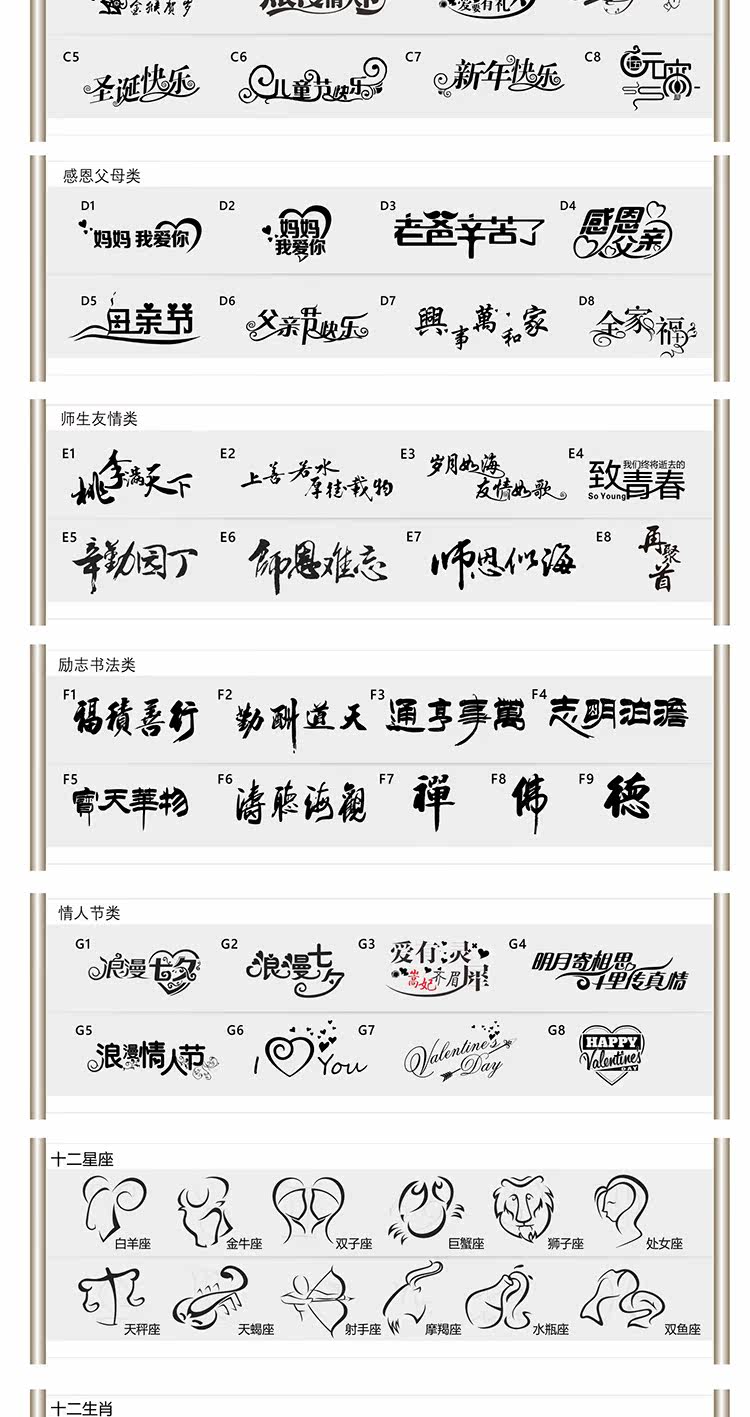 金猴贺岁
爱有礼
C5
圣诞快乐
C6
儿童节快乐
C7
新年快乐
C8
元宵
感恩父母类
D1
妈妈 我爱你
D2
妈妈
我爱你
D3
老爸辛苦了
D4
感恩
父亲
D5
母亲节
D6
父亲节快乐
D7
興事萬和家
D8
全家福
师生友情类
E1
桃李满天下
E2
上善若水
厚德载物
E3
岁月如海
友情如歌
E4
致青春
我们终将逝去的
So Young
E5
辛勤园丁
E6
師恩难忘
E7
师恩似海
E8
再聚首
励志书法类
F1
福積善行
F2
勤酬道天
F3
通亨事萬
F4
志明泊澹
F5
寳天華物
F6
濤聽海觀
F7
禪
F8
佛
F9
德
情人节类
G1
浪漫七夕
G2
浪漫七夕
G3
爱有灵犀
嵩妃齐眉
G4
明月寄相思
千里传真情
G5
浪漫情人节
G6
I You
G7
Valentine's
Day
G8
HAPPY
Valentines
DAY
十二星座
白羊座
金牛座
双子座
巨蟹座
狮子座
处女座
天秤座
天蝎座
射手座
摩羯座
水瓶座
双鱼座
十二生肖